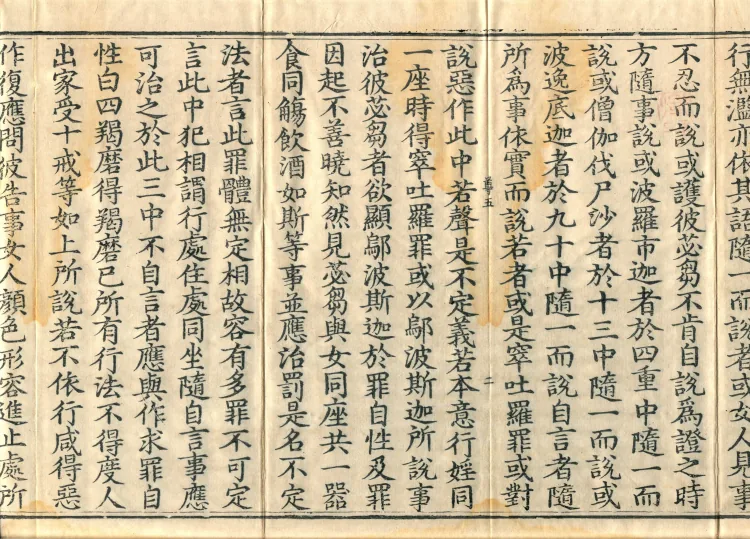 行無濫亦依其語隨一而說者或女人見事
不忍而說或護彼苾芻不肯自說為證之時
方隨事說或波羅市迦者於四重中隨一而
說或僧伽伐尸沙者於十三中隨一而說或
波逸底迦者於九十中隨一而說自言者隨
所為事依實而說若者或是窣吐羅罪或對
尊五
二
說惡作此中若聲是不定義若本意行婬同
一座時得窣吐羅罪或以鄔波斯迦所說事
治彼苾芻者欲顯鄔波斯迦於罪自性及罪
因起不善曉知然見苾芻與女同座共一器
食同觴飲酒如斯等事並應治罰是名不定
法者言此罪體無定相故容有多罪不可定
言此中犯相謂行處住處同坐隨自言事應
可治之於此三中不自言者應與作求罪自
性白四羯磨得羯磨已所有行法不得度人
出家受十戒等如上所說若不依行咸得惡
作復應問彼告事女人顏色形容進止處所